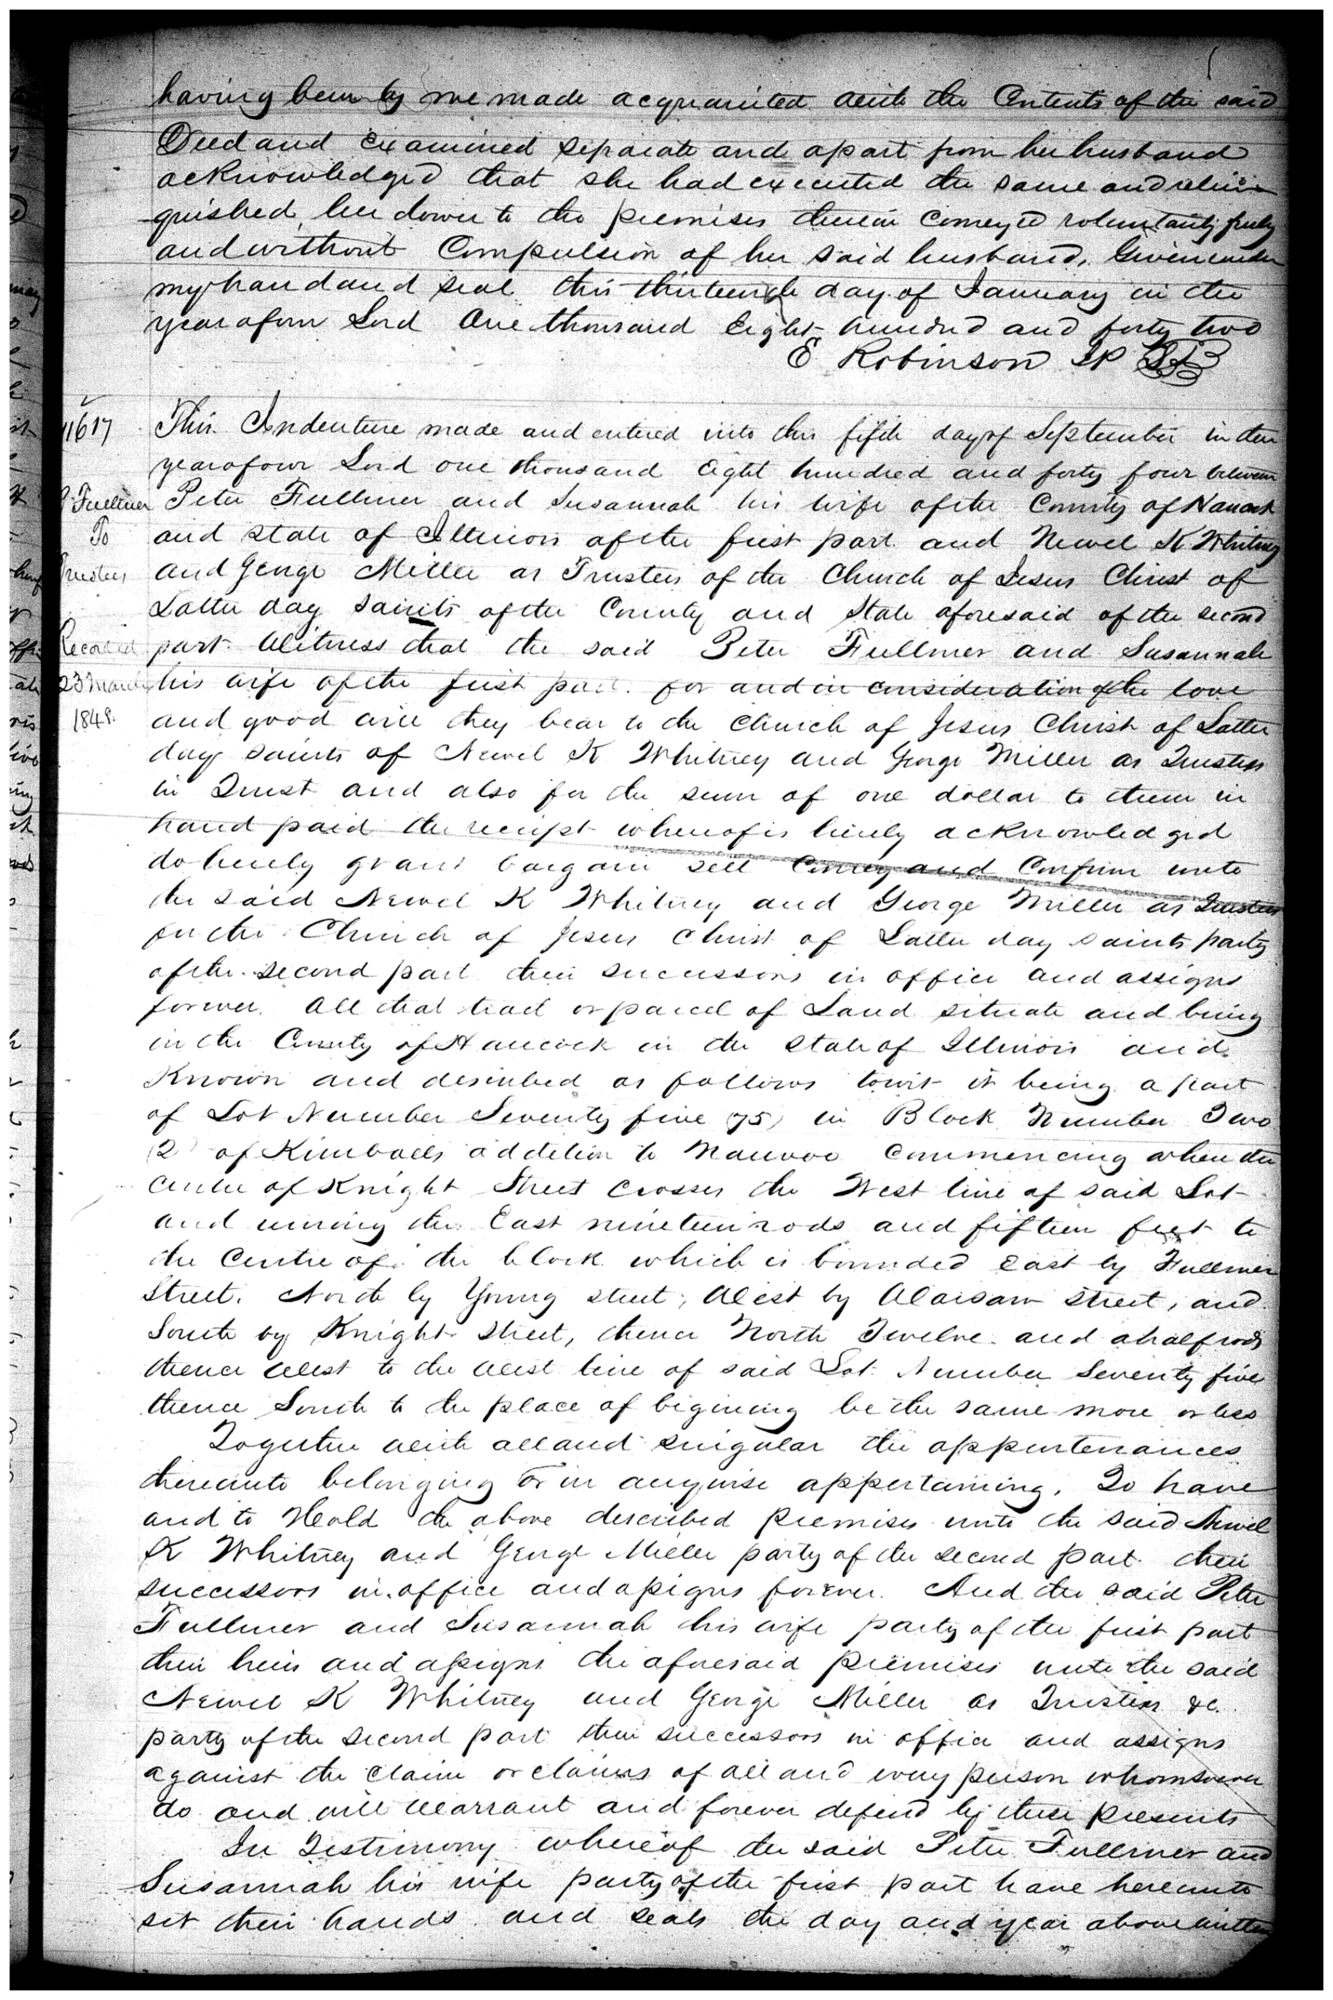 having been by me made acquainted with the Contents of the said
Deed and examined separate and apart from her husband
acknowledged that she had executed the same and relin-
quished her dower to the premises therein conveyed voluntarily freely
and without Compulsion of her said husband, Given under
my hand and seal this thirteenth day of January in the
year of our Lord One thousand Eight hundred and forty two
E Robinson JP
11617
This Indenture made and entered into this fifth day of September in the
year of our Lord one thousand eight hundred and forty four between
P Fullmer
Peter Fullmer and Susannah his wife of the County of Hancock
To
and State of Illinois of the first part and Newel K Whitney
Trustees
and George Miller as Trustees of the Church of Jesus Christ of
Latter day saints of the County and State aforesaid of the second
Recorded
part. Witness that the said Peter Fullmer and Susannah
23 March
his wife of the first part for and in consideration of the love
1848.
and good will they bear to the Church of Jesus Christ of Latter
day saints of Newel K Whitney and George Miller as Trustees
in Trust and also for the sum of one dollar to them in
hand paid the receipt whereof is hereby acknowledged
do hereby grant bargain sell Convey and Confirm unto
the said Newel K Whitney and George Miller as Trustees
for the Church of Jesus Christ of Latter day saints party
of the second part their successors in office and assigns
forever. All that tract or parcel of Land situate and being
in the County of Hancock in the State of Illinois and
Known and described as follows towit it being a part
of Lot Number Seventy five (75) in Block Number Two
(2) of Kimballs addition to Nauvoo Commencing where the
Centre of Knight Street Crosses the West line of said Lot
and runing the East nineteen rods and fifteen feet to
the Centre of the block which is bounded East by Fullmer
Street. North by Young street, West by Warsaw street, and
South by Knight street, thence North Twelve and a half rods
thence West to the West line of said Lot Number Seventy five
thence South to the place of begining be the same more or less
Together with all and singular the appurtenances
thereunto belonging or in anywise appertaining, To have
and to Hold the above described premises unto the said Newel
K Whitney and George Miller party of the second part their
successors in office and assigns forever. And the said Peter
Fullmer and Susannah his wife party of the first part
their heirs and assigns the aforesaid premises unto the said
Newel K Whitney and George Miller as Trustees &c.
party of the second part their successors in office and assigns
against the claim or claims of all and every person whomsoever
do and will warrant and forever defend by these presents
In Testimony whereof the said Peter Fullmer and
Susannah his wife party of the first part have hereunto
set their hands and seals the day and year above written